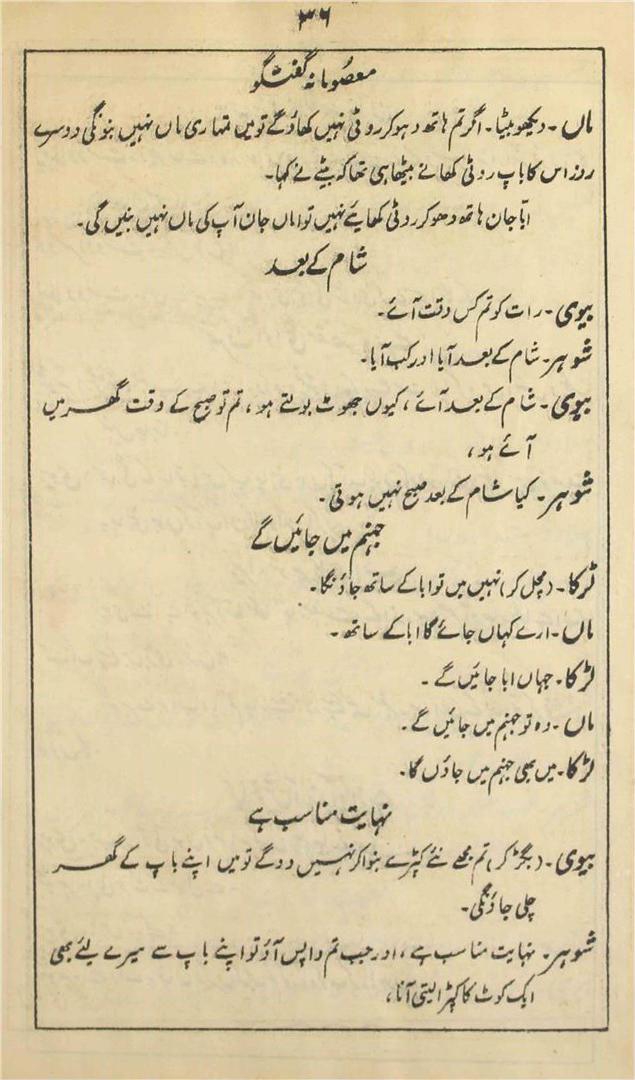 ۳۶
معصومانہ گفتگو
ماں ۔ دیکھو بیٹا۔ اگر تم ہاتھ دہو کر روٹی نہیں کھاؤ گے تو میں تمہاری ماں نہیں بنونگی دوسرے
روز اس کا باپ روٹی کھانے بیٹھا ہی تھا کہ بیٹے نے کہا۔
ابّا جان ہاتھ دھو کر روٹی کھایئے نہیں تو اماں جان آپ کی ماں نہیں بنیں گی۔
شام کے بعد
بیوی ۔ رات کو تم کس وقت آئے۔
شوہر۔ شام کے بعد آیا اور کب آیا۔
بیوی ۔ شام کے بعد آئے ، کیوں جھوٹ بولتے ہو ، تم تو صبح کے وقت گھر میں
آئے ہو ،
شوہر۔ کیا شام کے بعد صبح نہیں ہوتی ۔
جہنم میں جائیں گے
لڑکا ۔ (مچل کر) نہیں میں تو ابا کے ساتھ جاؤنگا۔
ماں ۔ ارے کہاں جائے گا ابا کے ساتھ ۔
لڑکا ۔ جہاں ابا جائیں گے ۔
ماں ۔ وہ تو جہنم میں جائیں گے ۔
لڑکا ۔ میں بھی جہنم میں جاؤں گا۔
نہایت مناسب ہے
بیوی ۔ (بگڑ کر) تم مجھے نئے کپڑے بنوا کر نہیں دو گے تو میں اپنے باپ کے گھر
چلی جاؤنگی۔
شوہر۔ نہایت مناسب ہے ، اور جب تم واپس آؤ تو اپنے باپ سے میرے لیئے بھی
ایک کوٹ کا کپڑا لیتی آنا ،